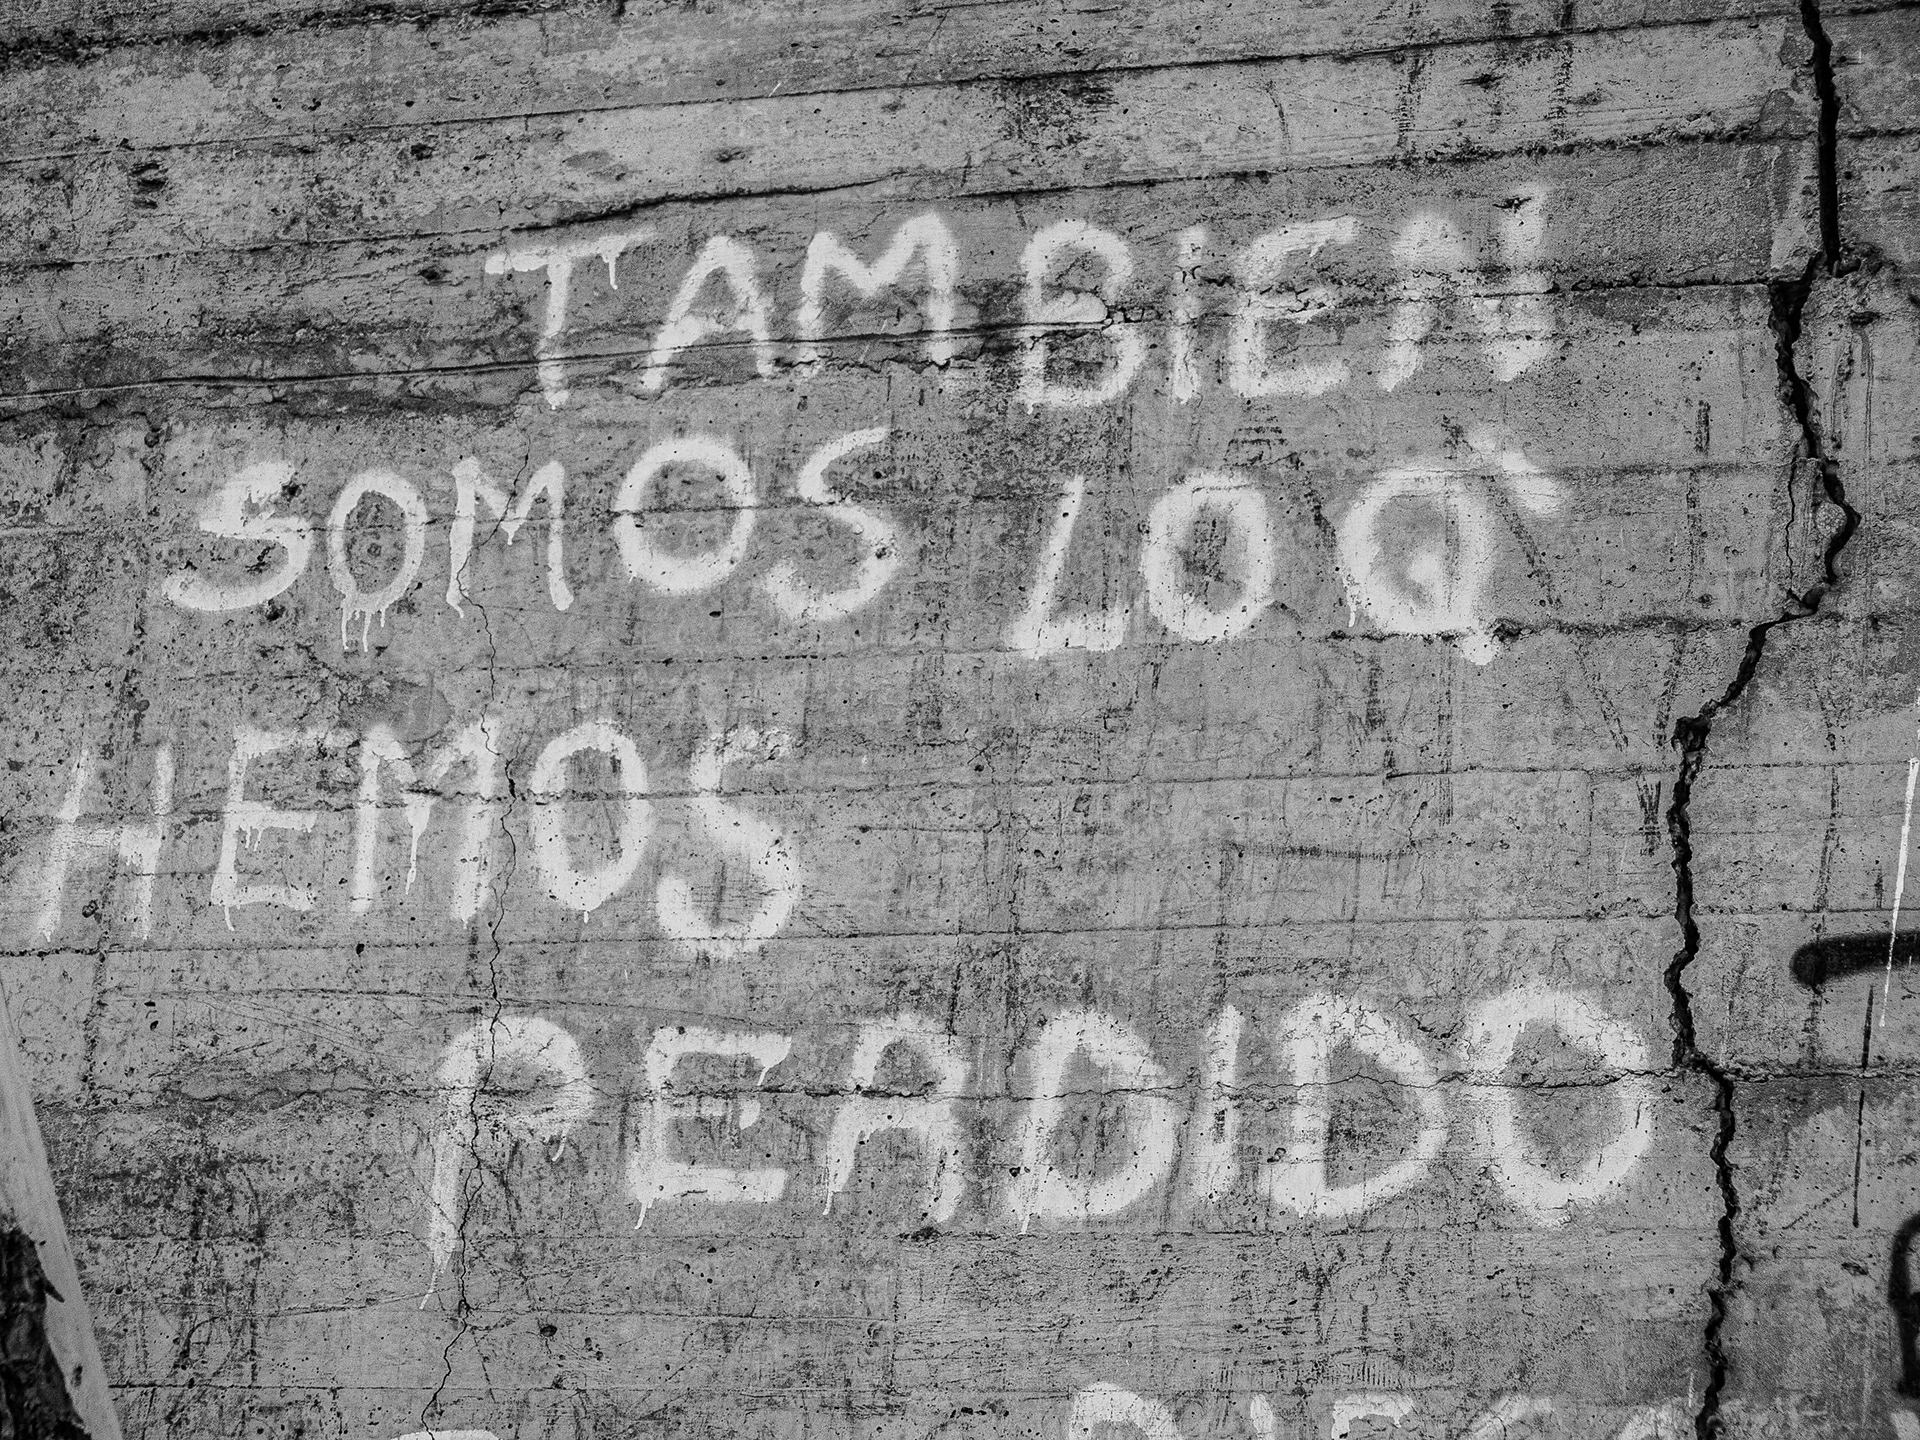 TAMBIEN
SOMOS LO Q'
HEMOS
PERDIDO